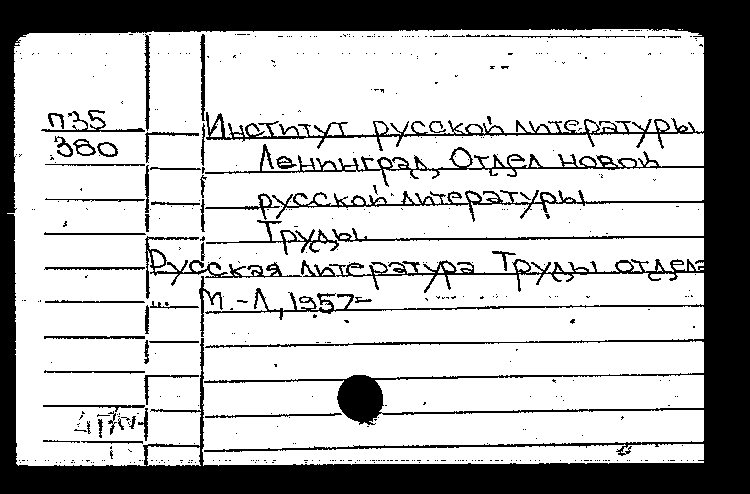 П35
380
Институт русской литературы
Ленинград, Отдел новой
русской литературы
Труды.
Русская литература Труды отдела
... М.-Л, 1957-